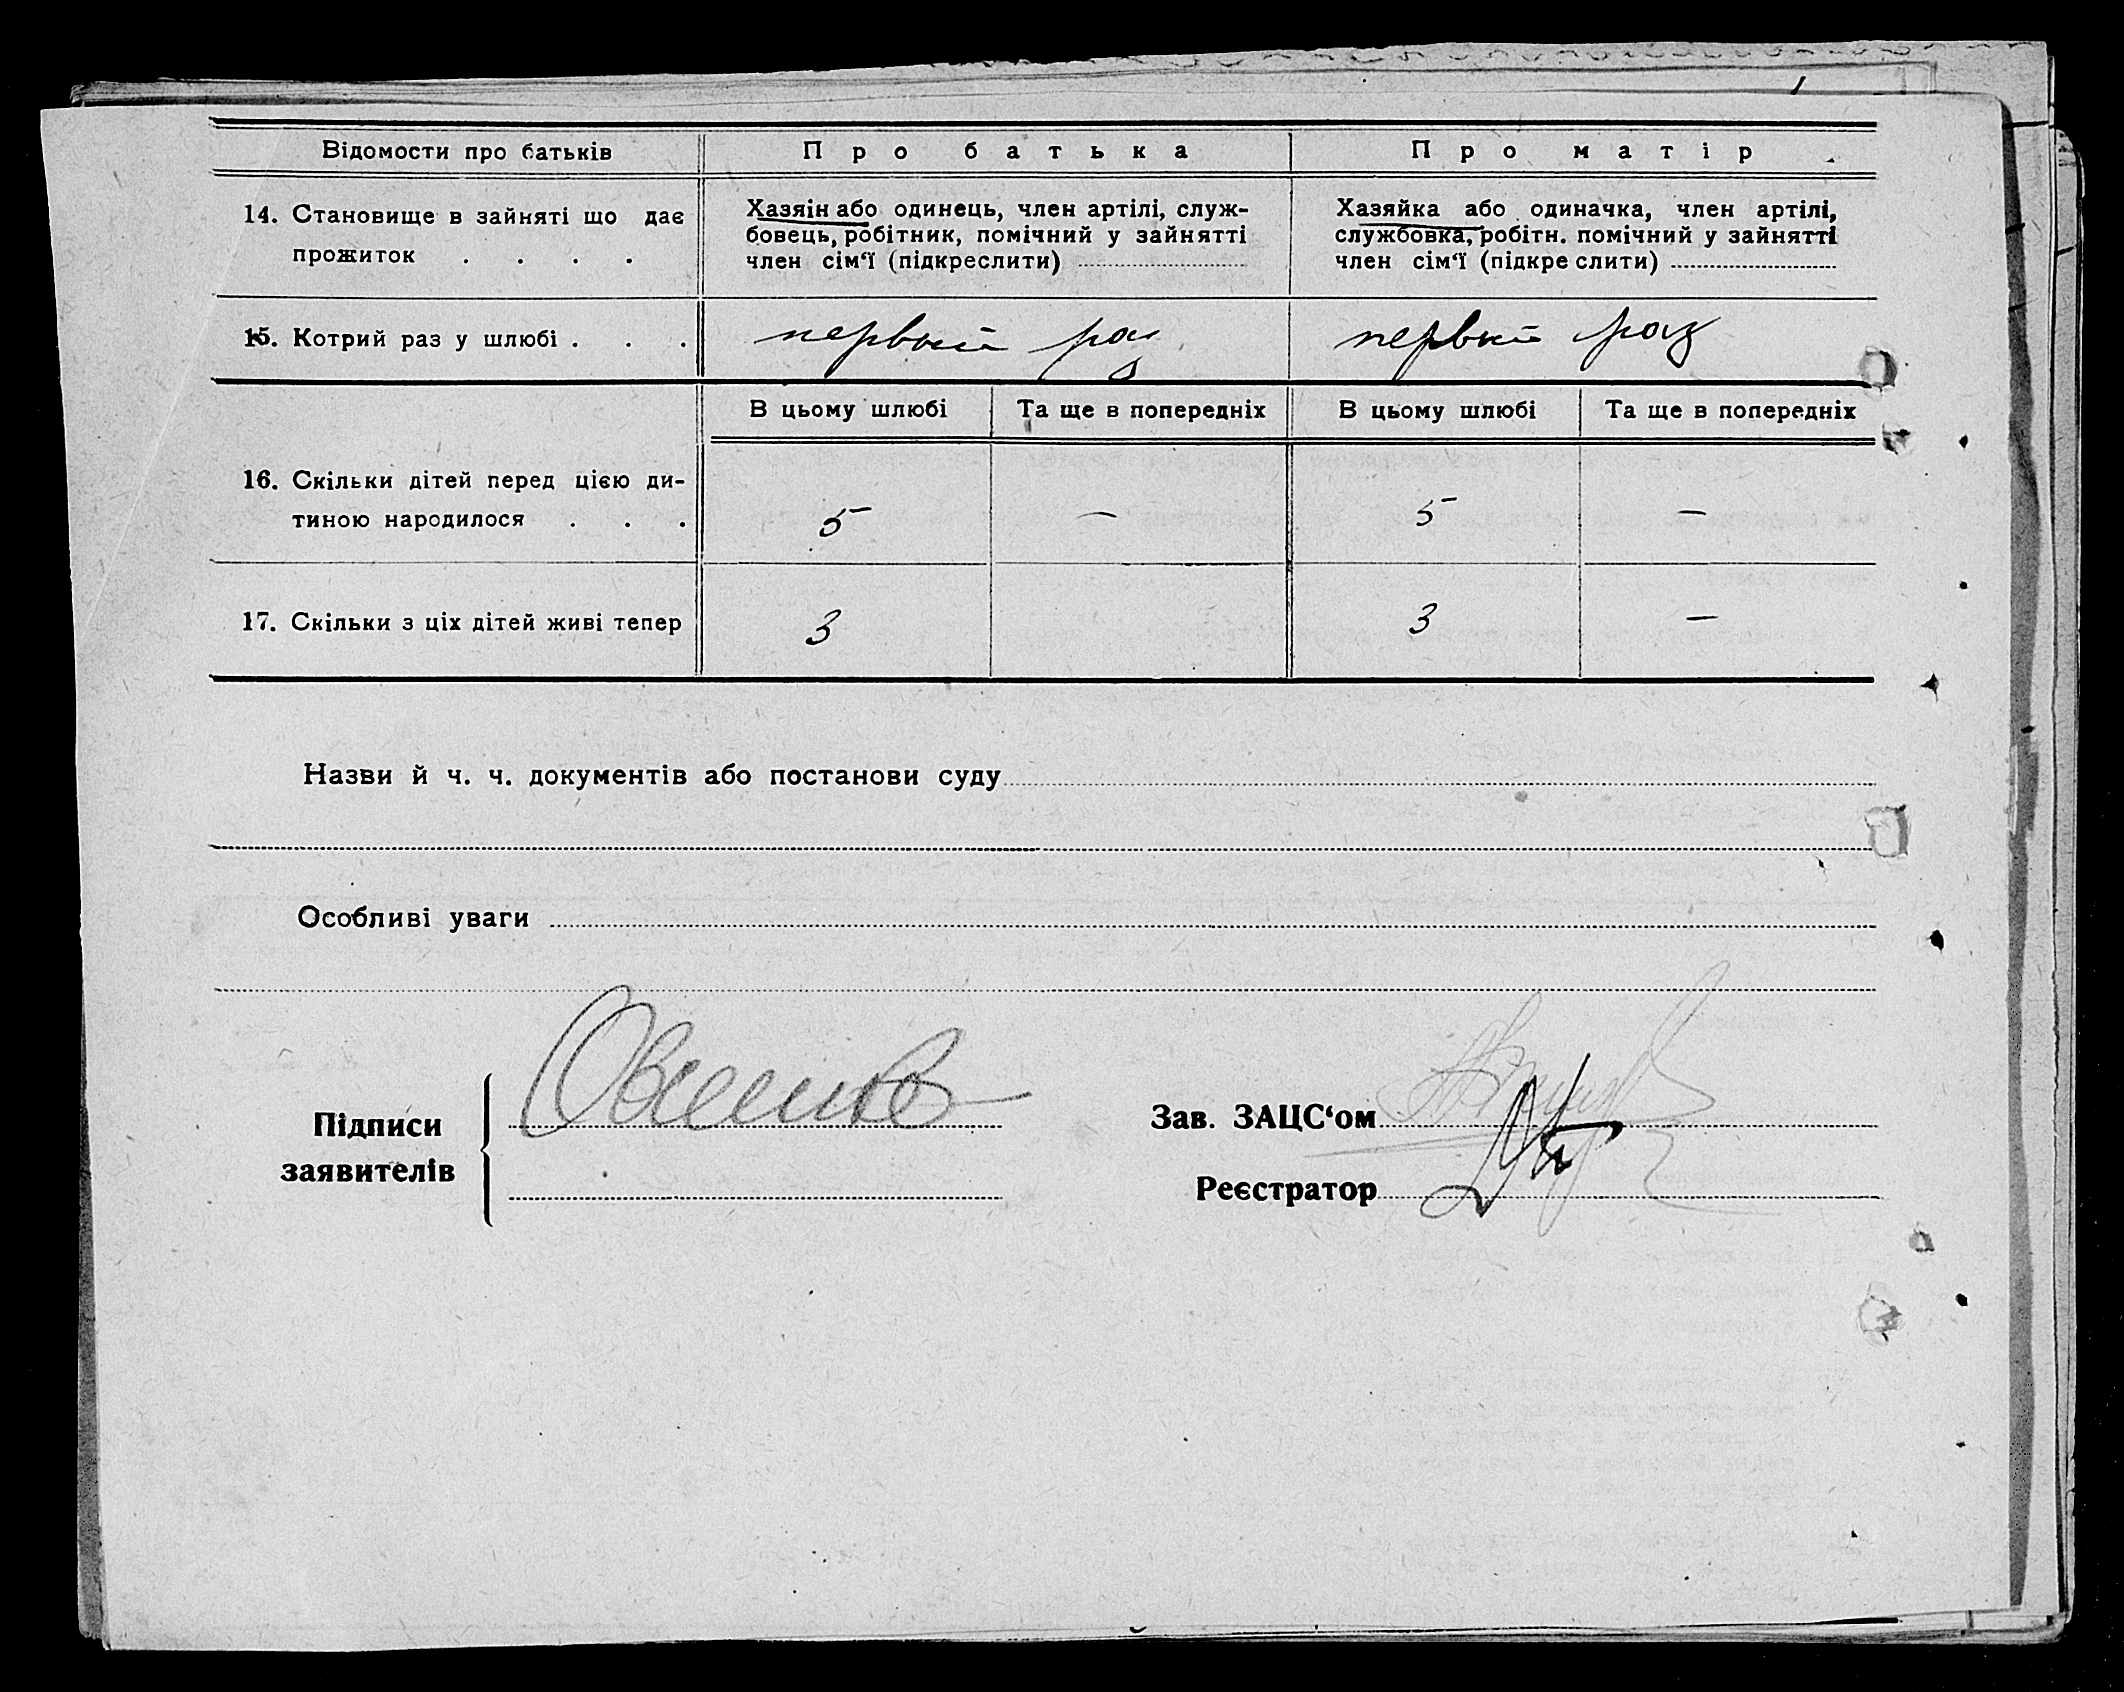 Відомости про батьків Про батька Про матір
14. Становище в зайняті що дає
прожиток . . . .
Хазяін або одинець, член артілі, служ-
бовець, робітник, помічний у зайнятті
член сім‘ї (підкреслити)
Хазяйка або одиначка, член артілі,
службовка, робітн. помічний у зайнятті
член сім‘ї (підкреслити)
15. Котрий раз у шлюбі . . . первый раз первый раз
В цьому шлюбі Та ще в попередніх В цьому шлюбі Та ще в попередніх
16. Скільки дітей перед цією ди-
тиною народилося . . . 5 — 5 —
17. Скільки з ціх дітей живі тепер 3 3 —
Назви й ч. ч. документів або постанови суду
Особливі уваги
Підписи
заявителів
Зав. ЗАЦС‘ом
Реєстратор